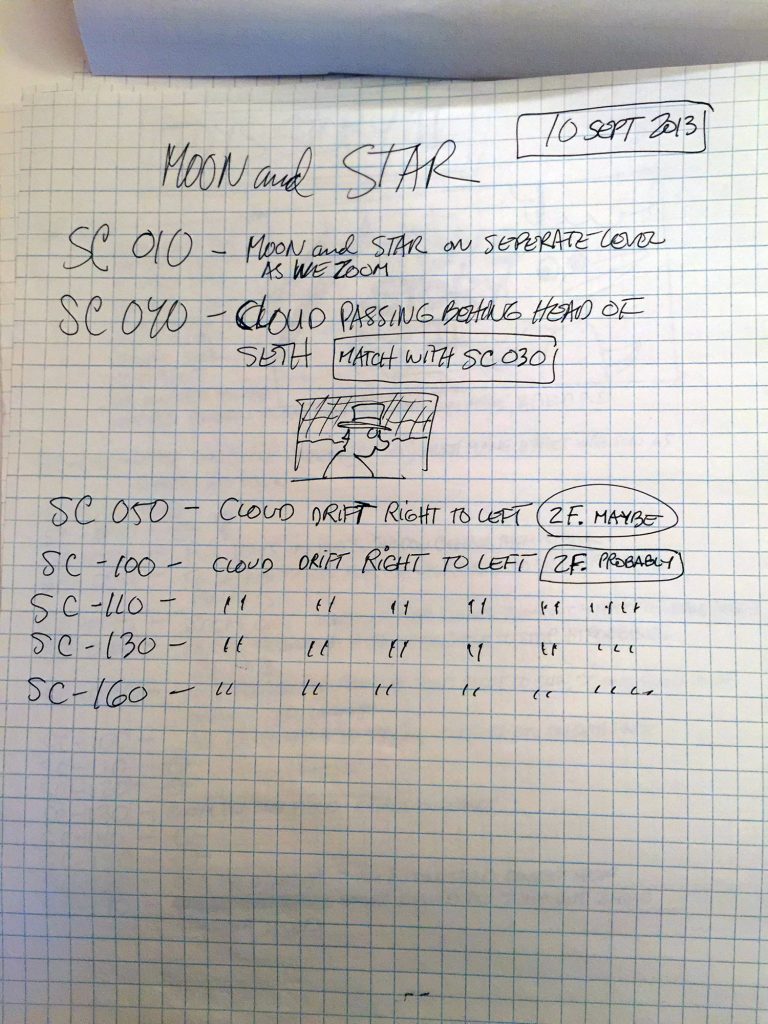 10 SEPT 2013
MOON and STAR
SC 010 - MOON and STAR ON SEPERATE LEVEL
AS WE ZOOM
SC 040 - CLOUD PASSING BEHING HEAD OF
SETH MATCH WITH SC 030
SC 050 - CLOUD DRIFT RIGHT TO LEFT 2F. MAYBE
SC -100 - CLOUD DRIFT RIGHT TO LEFT 2F. PROBABLY
SC -110 - " " " " " " "
SC -130 - " " " " " " "
SC -160 - " " " " " " "